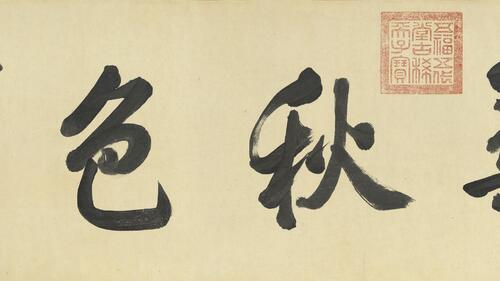 秋色
五福五代
堂古稀
天子寶